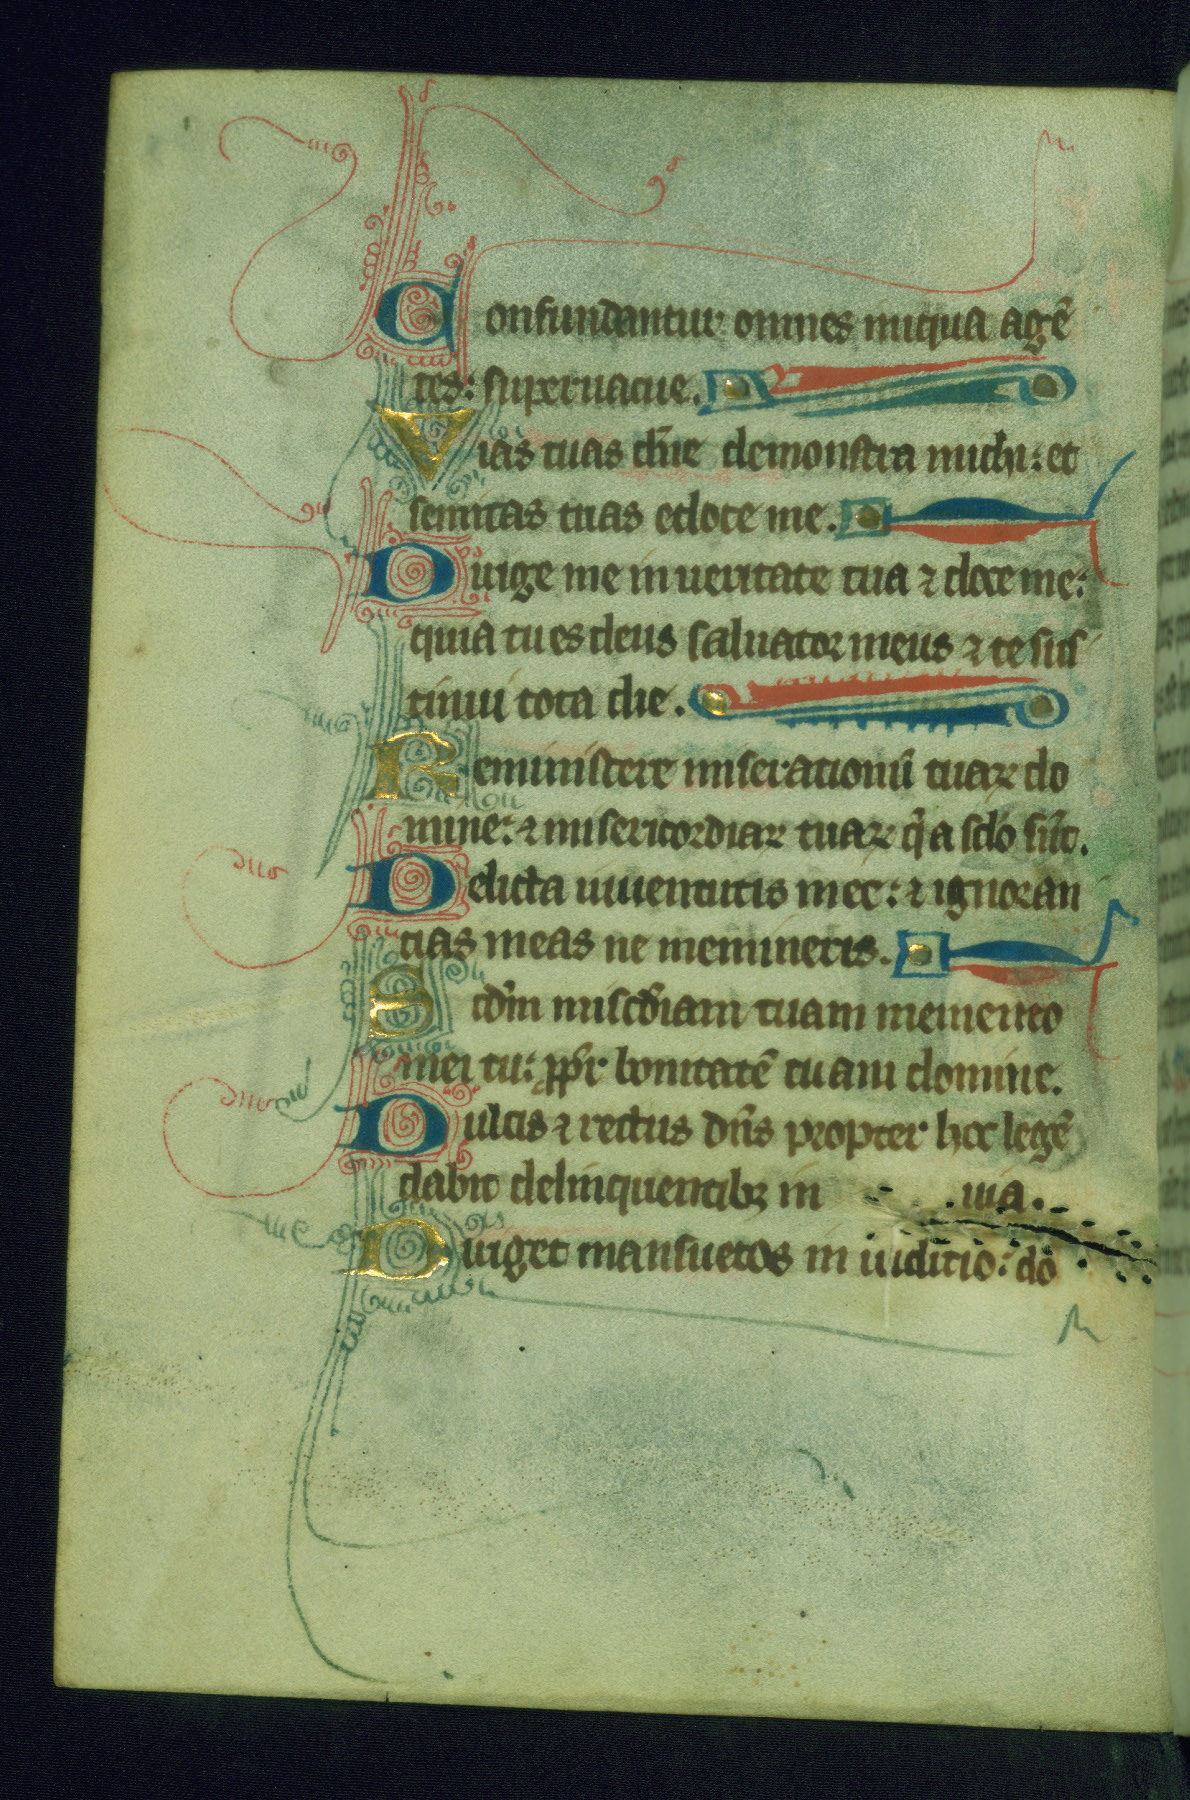 Confundantur omnes iniqua agē
tes: superuacue.
Vias tuas dn̄e demonstra michi: et
semitas tuas edoce me.
Dirige me in ueritate tua ⁊ doce me:
quia tu es deus saluator meus ⁊ te sus
tinui tota die.
Reminiscere miserationū tuaꝝ do
mine: ⁊ misericordiaꝝ tuaꝝ q̄ a sclo sūt.
Delicta iuuentutis mee: ⁊ ignoran
tias meas ne memineris.
Scdm̄ miscd̄iam tuam memento
mei tu: ppt̄r bonitatē tuam domine.
Dulcis ⁊ rectus dn̄s propter hoc legē
dabit delinquentibꝫ in uia.
Diriget mansuetos in iuditio: do